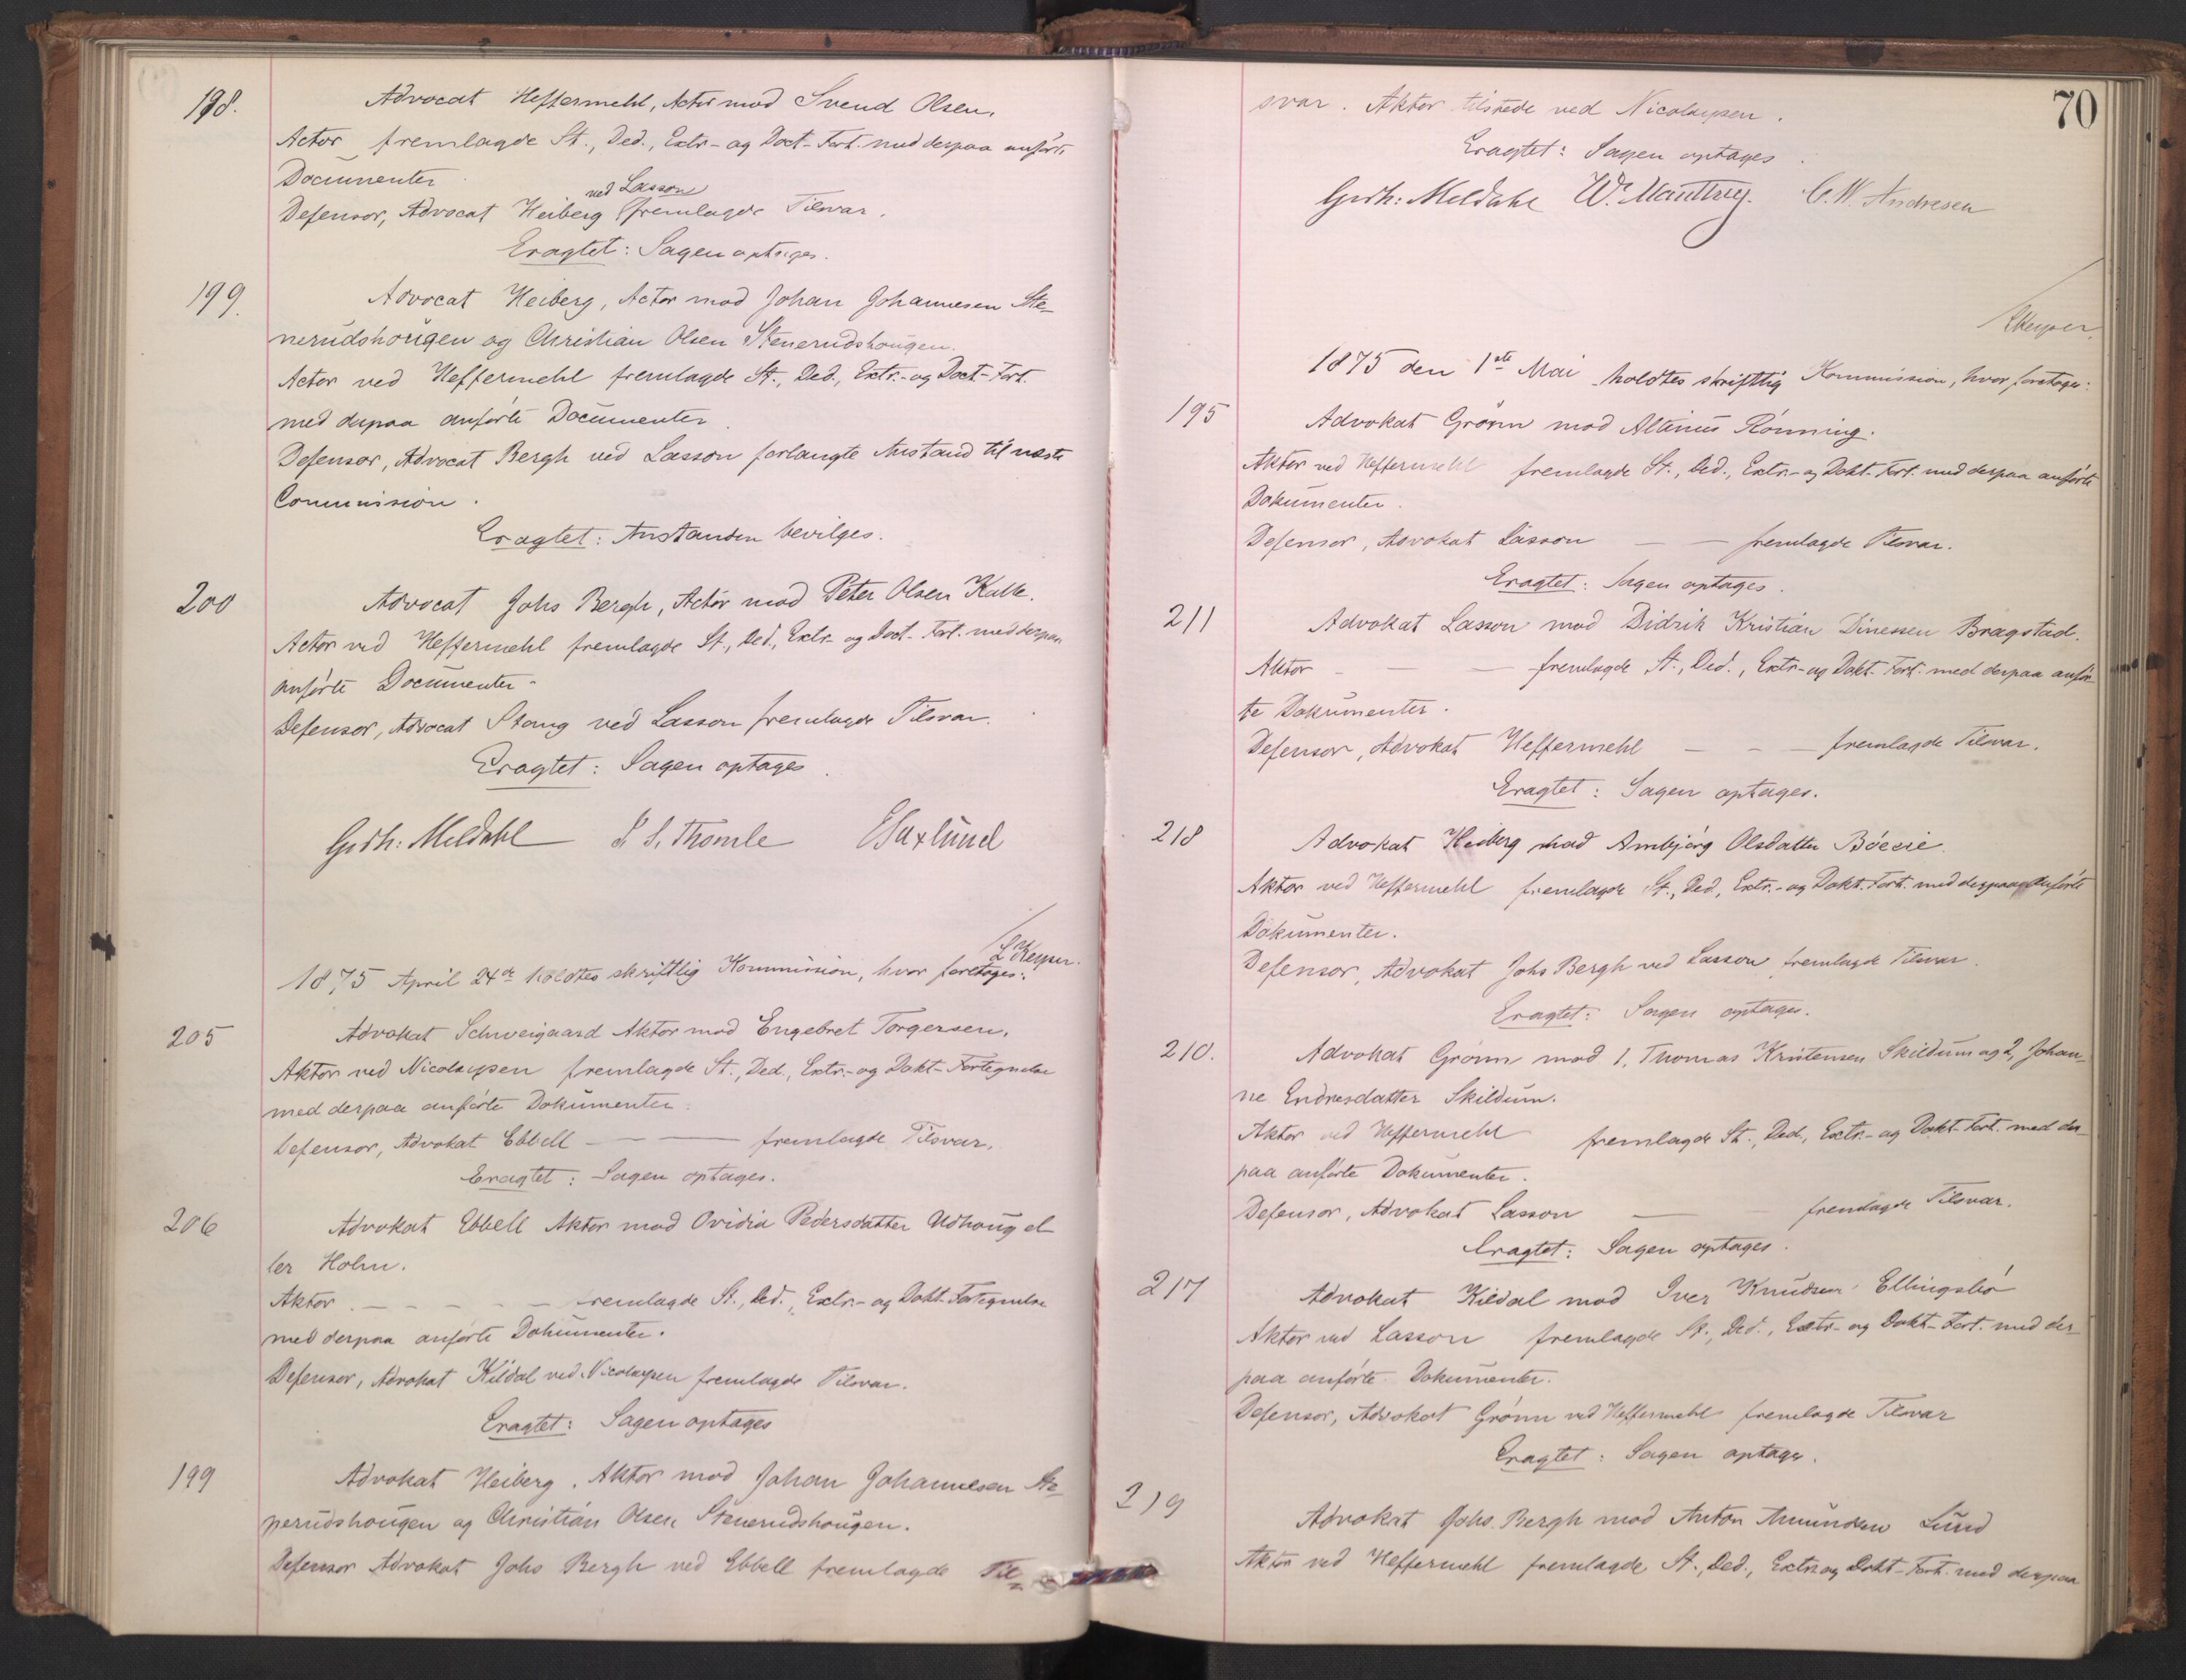 198. Advocat Heffermehl, Actor mod Svend Olsen.
Actor fremlagde St., Ded., Extr- og Doct-Fort. med derpaa anførte
Documenter
ved Lasson
Defensor, Advocat Heiberg fremlagde Tilsvar.
Eragtet: Sagen optages.
199. Advocat Heiberg, Actor mod Johan Johannesen Ste-
nerudshougen og Christian Olsen Stenerudshougen.
Actor ved Heffermehl fremlagde St., Ded., Extr.- og Doct-Fort.
med derpaa anførte Documenter.
Defensor, Advocat Bergh ved Lasson forlangte Anstand til næste
Commission.
Eragtet: Anstanden bevilges.
200 Advocat Johs Bergh, Actor mod Peter Olsen Kalle.
Actor ved Heffermehl fremlagde St., Ded., Extr- og Doct-Fort. med derpaa
anførte Documenter.
Defensor, Advocat Stang ved Lasson fremlagde Tilsvar.
Eragtet: Sagen optages.
Gerh: Meldahl S. S. Thomle Haxlund
L Keyser.
1875 April 24de holdtes skriftlig Kommission, hvor foretoges:
205 Advokat Schweigaard Aktor mod Engebret Torgersen.
Aktor ved Nicolaysen fremlagde St., Ded., Extr.- og Dokt-Fortegnelse
med derpaa anførte Dokumenter.
Defensor, Advokat Ebbell — — — fremlagde Tilsvar.
Eragtet: Sagen optages.
206 Advokat Ebbell Aktor mod Ovidia Pedersdatter Udhoug el-
ler Holm.
Aktor. — — — — — fremlagde St., Ded., Extr.- og Dokt-Fortegnelse
med derpaa anførte Dokumenter.
Defensor, Advokat Kildal ved Nicolaysen fremlagde Tilsvar.
Eragtet: Sagen optages
199 Advokat Heiberg. Aktor mod Johan Johannesen Ste-
nerudshougen og Christian Olsen Stenerudshougen.
Defensor Advokat Johs Bergh ved Ebbell fremlagde Til-
70
svar. Aktor tilstede ved Nicolaysen.
Eragtet: Sagen optages.
Gerh: Meldahl W. C. W. Andresen
LKeyser.
1875 den 1ste Mai holdtes skriftlig Kommission, hvor foretoges:
195 Advokat Grønn mod Altinius Rønning.
Aktor ved Heffermehl fremlagde St., Ded., Extr.- og Dokt-Fort. med derpaa anførte
Dokumenter.
Defensor, Advokat Lasson — — fremlagde Tilsvar.
Eragtet: Sagen optages.
211 Advokat Lasson mod Didrik Kristian Dinessen Bragstad.
Aktor — — — fremlagde St., Ded., Extr- og Dokt-Fort. med derpaa anfør-
te Dokumenter.
Defensor, Advokat Heffermehl — — — fremlagde Tilsvar.
Eragtet: Sagen optages.
218 Advokat Heiberg mod Ambjørg Olsdatter Bøesie.
Aktor ved Heffermehl fremlagde St., Ded., Extr.- og Dokt.-Fort. med derpaa anførte
Dokumenter.
Defensor, Advokat Johs Bergh ved Lasson fremlagde Tilsvar.
Eragtet: Sagen optages.
210. Advokat Grønn mod 1, Thomas Kristensen Skildum og 2, Johan-
ne Endresdatter Skildum.
Aktor ved Heffermehl fremlagde St., Ded., Extr.- og Dokt-Fort. med der-
paa anførte Dokumenter.
Defensor, Advokat Lasson — — fremlagde Tilsvar.
Eragtet: Sagen optages.
217 Advokat Kildal mod Iver Knudsen Ellingsbø
Aktor ved Lasson fremlagde St., Ded., Extr- og Dokt-Fort. med der-
paa anførte Dokumenter.
Defensor, Advokat Grønn ved Heffermehl fremlagde Tilsvar
Eragtet: Sagen optages.
219 Advokat Johs. Bergh mod Anton Amundsen Lund
Aktor ved Heffermehl fremlagde St., Ded., Extr. og Dokt-Fort. med derpaa